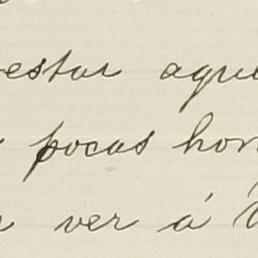 estar aque
pocas hor
ver á